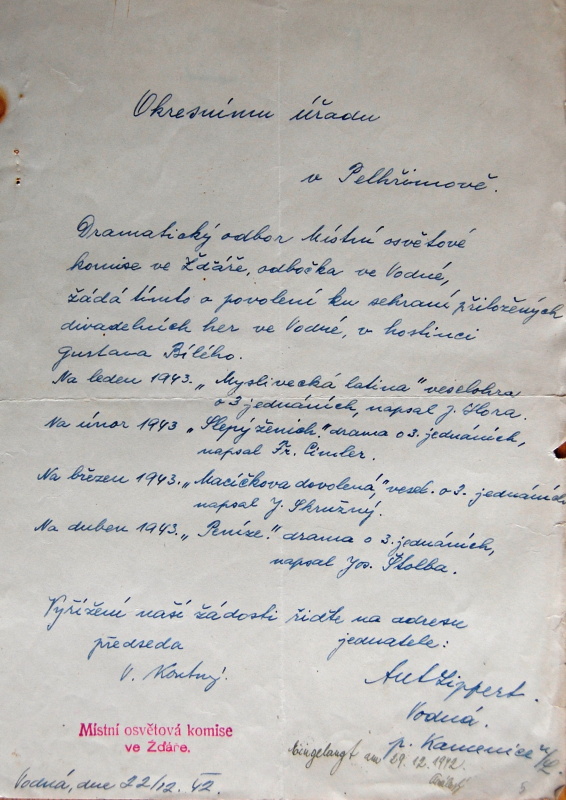 Okresnímu úřadu
v Pelhřimově.
Dramatický odbor Místní osvětové
komise ve Žďáře, odbočka ve Vodné,
žádá tímto o povolení ku sehraní přiložených
divadelních her ve Vodné, v hostinci
Gustava Bílého.
Na leden 1943. „Myslivecká latina" veselohra
o 3 jednáních, napsal J. Hora.
Na únor 1943 „Slepý ženich." drama o 3. jednáních,
napsal Fr. Cimler.
Na březen 1943. „Macíčkova dovolená," vesel. o 3. jednáních
napsal J. Skružný.
Na duben 1943. „Peníze." drama o 3. jednáních,
napsal Jos. Štolba.
Vyřízení naší žádosti řiďte na adresu
předseda jednatele:
V. Ant. Lippert.
Vodná.
p. Kamenice n/L.
Místní osvětová komise
ve Žďáře.
Eingelangt am 29.12.1942
Vodná, dne 22/12. 42.